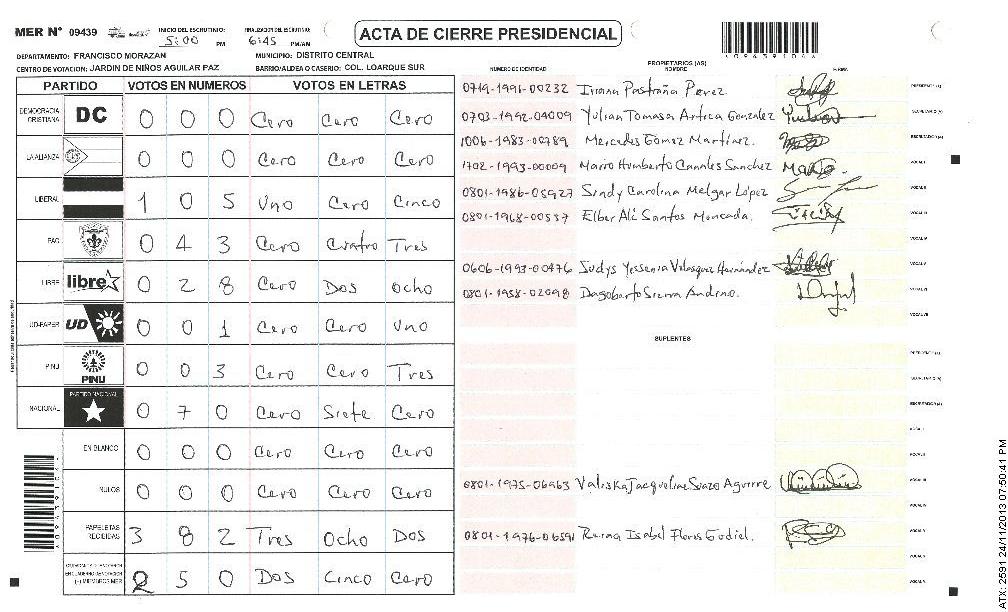 MER N° 09439 INICIO DEL ESCRUTINIO: 5:00 PM FINALIZACION DEL ESCRUTINIO: 6:45 PM/AM
ACTA DE CIERRE PRESIDENCIAL
DEPARTAMENTO: FRANCISCO MORAZAN MUNICIPIO: DISTRITO CENTRAL
CENTRO DE VOTACION: JARDIN DE NIÑOS AGUILAR PAZ BARRIO/ALDEA O CASERIO: COL. LOARQUE SUR
PARTIDO VOTOS EN NUMEROS VOTOS EN LETRAS
DEMOCRACIA CRISTIANA DC 0 0 0 Cero Cero Cero
LA ALIANZA 0 0 0 Cero Cero Cero
LIBERAL 1 0 5 Uno Cero Cinco
PAC 0 4 3 Cero Cuatro Tres
LIBRE libre 0 2 8 Cero Dos Ocho
UD-FAPER UD 0 0 1 Cero Cero Uno
PINU PINU 0 0 3 Cero Cero Tres
NACIONAL PARTIDO NACIONAL 0 7 0 Cero Siete Cero
EN BLANCO 0 0 0 Cero Cero Cero
NULOS 0 0 0 Cero Cero Cero
PAPELETAS RECIBIDAS 3 8 2 Tres Ocho Dos
(+) MIEMBROS MER 2 5 0 Dos Cinco Cero
NUMERO DE IDENTIDAD PROPIETARIOS (AS) NOMBRE FIRMA
0719-1991-00232 Irmna Pastraña Perez.
0703-1992-04009 Yulian Tomasa Artica Gonzalez
1006-1983-00789 Mercedes Gomez Martinez.
1702-1993-00009 Mario Humberto Canales Sanchez
0801-1986-05927 Sindy Carolina Melgar López
0801-1968-00537 Elber Alí Santos Moncada.
0606-1993-00476 Sudys Yessenia Velasquez Hernández
0801-1958-02098 Dagoberto Sierra Andino.
SUPLENTES
0801-1975-06963 Valiska Jacqueline Suazo Aguirre
0801-1976-06591 Reina Isabel Flores Gudiel.
ATX: 2591 24/11/2013 07:50:41 PM